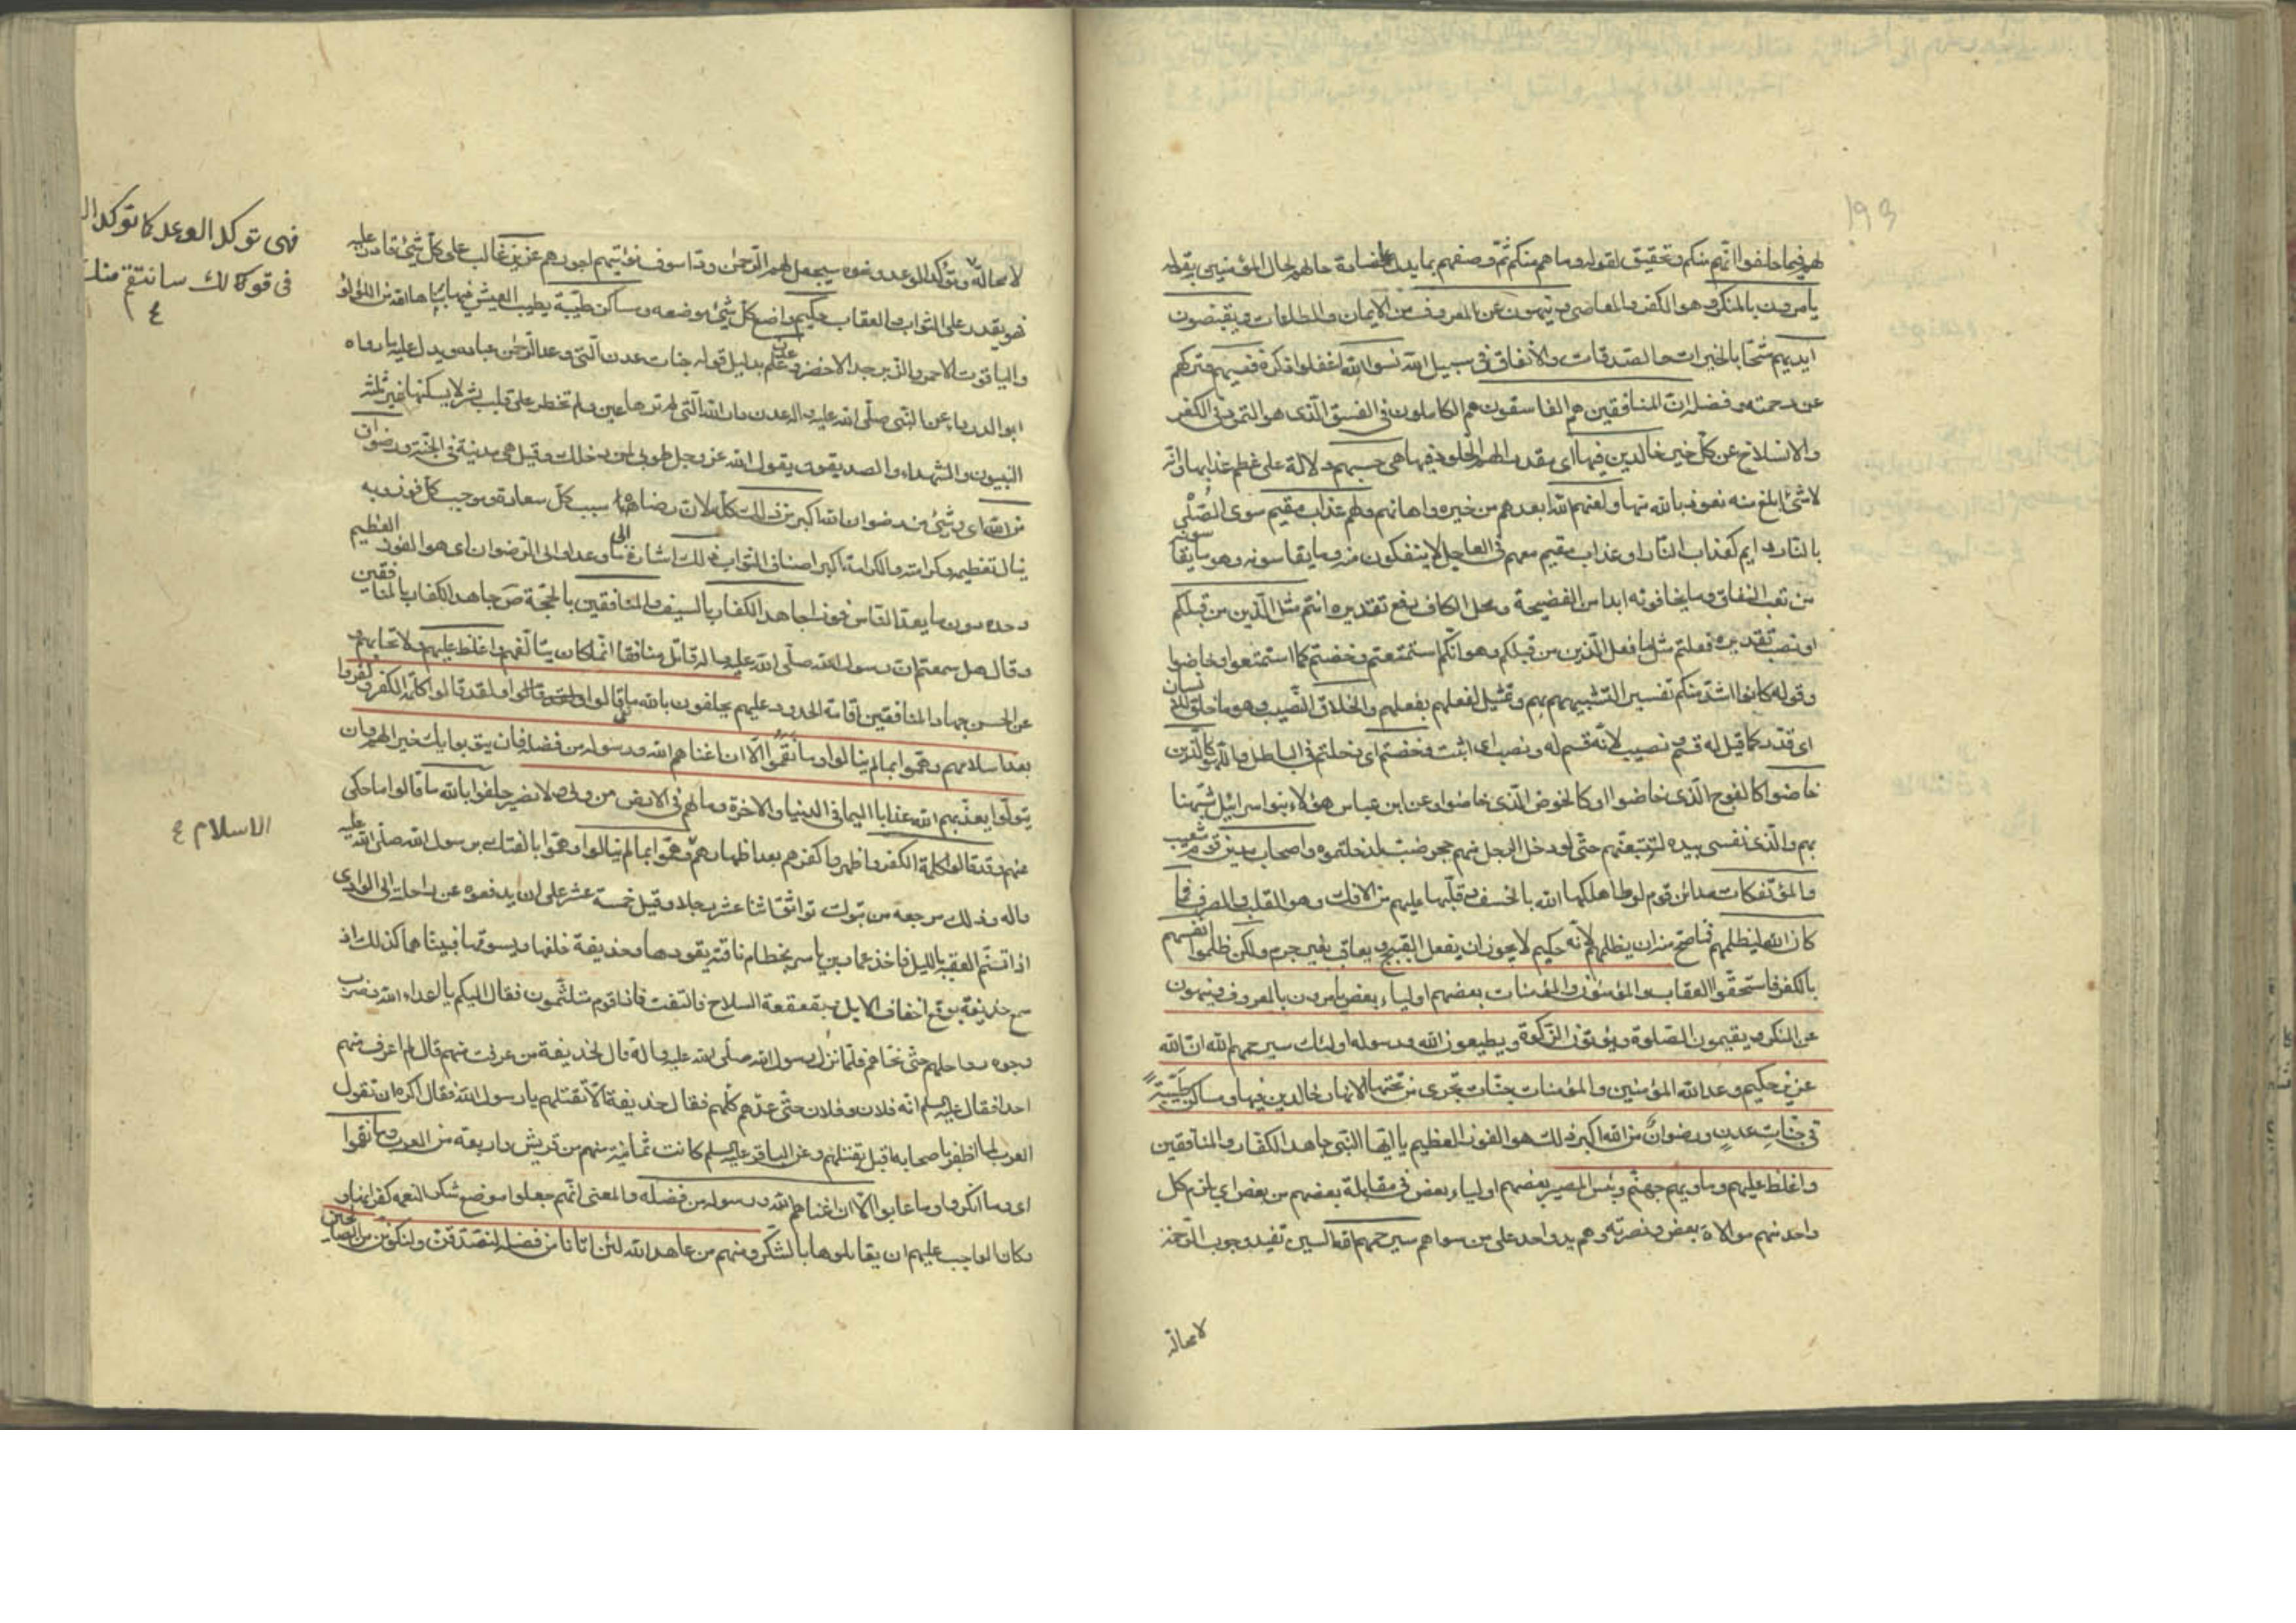 ١٩٣
لهم فيما حلفوا انّهم منكم وتحقيق لقوله وما هم منكم ثمّ وصفهم بما يدل على مضادة حالهم لحال المؤمنين بقوله
يأمرون بالمنكر وهو الكفر والمعاصى وينهون عن المعروف من الايمان والطاعات ويقبضون
ايديهم شحّا بالخيرات والصّدقات والانفاق فى سبيل الله نسوا الله اغفلوا ذكره فنسيهم فتركهم
عن رحمته وفضله انّ المنافقين هم الفاسقون هم الكاملون فى الفسق الّذى هو التمرد فى الكفر
والانسلاخ عن كلّ خير خالدين فيها اى مقدرا لهم الخلود فيها هى حسبهم دلالة على عظم عذابها وانّه
لا شئ ابلغ منه نعوذ بالله منها ولعنهم الله ابعدهم من خيره واهانهم ولهم عذاب مقيم سوى الصُّلْى
بالنّار دايم كعذاب النّار او عذاب مقيم معهم فى العاجل لا ينفكون منه وما يقاسونه وهو ما يقا سونه
من تعب النفاق وما يخافونه ابدا من الفضيحة ومحل الكاف رفع تقديره انتم مثل الّذين من قبلكم
او نصب تقديره فعلتم مثل ما فعل الّذين من قبلكم وهو انّكم استمتعتم وخضتم كما استمتعوا وخاضوا
وقوله كانوا اشدّ منكم تفسير التشبيههم بهم وتمثيل لفعلهم بفعلهم والخلاق النّصيب وهو ما خلق للانسان
اى قدر كما قيل له قسم ونصيب لانّه قسم له ونصب اى اثبت وخضتم اى دخلتم فى الباطل واللّهو كالّذين
خاضوا كالفوج الّذى خاضوا او كالخوض الّذى خاضوا وعن ابن عباس هؤلاء بنوا اسرائيل شبّهنا
بهم والّذى نفسى بيده لتتّبعنّهم حتّى لو دخل الرّجل منهم جحر ضبّ لدخلتموه واصحاب مدين قوم شعيب
والمؤتفكات مدائن قوم لوط اهلكها الله بالخسف وقلبها عليهم من الافك وهو القلب والصرف فما
كان الله ليظلمهم فما صحّ منه ان يظلمهم لانّه حكيم لا يجوز ان يفعل القبيح ويعاقب بغير جرم ولكن ظلموا انفسهم
بالكفر فاستحقّوا العقاب والمؤمنون والمؤمنات بعضهم اولياء بعض يأمرون بالمعروف وينهون
عن المنكر ويقيمون الصّلوة ويؤتون الزّكوة ويطيعون الله ورسوله اولئك سيرحمهم الله انّ الله
عزيز حكيم وعد الله المؤمنين والمؤمنات جنّات تجرى من تحتها الانهار خالدين فيها ومساكن طيّبة
فى جنّات عدن ورضوان من الله اكبر ذلك هو الفوز العظيم يا ايّها النّبى جاهد الكفّار والمنافقين
واغلظ عليهم ومأويهم جهنّم وبئس المصير بعضهم اولياء بعض فى مقابلة بعضهم من بعض اى يلزم كل
واحد منهم موالاة بعض ونصرته وهم يد واحد على من سواهم سيرحمهم الله السين تفيد وجوب الرّحمة
لا محالة
لا محالة وتؤكد للوعد ونحوه سيجعل لهم الرّحمن ودّا سوف نؤتيهم اجورهم عزيز غالب على كلّ شئ قادر عليه
فهو يقدر على الثواب والعقاب حكيم واضع كلّ شئ موضعه ومساكن طيّبة يطيب العيش فيها بناها الله من اللؤلؤ
والياقوت الاحمر والزبرجد الاخضر وعدن علم بدليل قوله جنات عدن الّتى وعد الرّحمن عباده ويدل عليه ما رواه
ابو الدرداء عن النّبى صلّى الله عليه واله عدن دار الله الّتى لم ترها عين ولم تخطر على قلب بشر لا يسكنها غير ثلثة
النّبيون والشهداء والصديقون يقول الله عزّ وجل طوبى لمن دخلك وقيل هى مدينة فى الجنّة ورضوان
من الله اى وشئ من رضوان الله اكبر من ذلك كلّه لانّ رضاه سبب كلّ سعادة وموجب كلّ فوز وبه
ينال تعظيمه وكرامته والكرامة اكبر اصناف الثواب ذلك اشارة الى ما وعد او الى الرضوان اى هو الفوز العظيم
وحده دون ما يعدّه النّاس فوزا جاهد الكفار بالسيف والمنافقين بالحجّة صَ جاهد الكفار بالمنافقين
وقال هل سمعتم انّ رسول الله صلّى الله عليه واله قاتل منافقا انّما كان يتألّفهم واغلظ عليهم ولا تحابهم و
عن الحسن جهاد المنافقين اقامة الحدود عليهم يحلفون بالله ما قالوا ولقد قالوا كلمة الكفر وكفروا
بعد اسلامهم وهمّوا بما لم ينالوا وما نَقَموا الّا ان اغناهم الله ورسوله من فضله فان يتوبوا يك خيرا لهم وان
يتولّوا يعذّبهم الله عذابا اليما فى الدنيا والاخرة وما لهم فى الارض من ولى ولا نصير حلفوا بالله ما قالوا ما حكى
عنهم وقد قالوا كلمة الكفر واظهروا كفرهم بعد اظهارهم وهمّوا بما لم ينالوا وهمّوا بالفتك برسول الله صلّى الله عليه
واله وذلك مرجعه من تبوك تواثق اثنا عشر رجلا وقيل خمسة عشر على ان يدفعوه عن راحلته الى الوادى
اذا تسنّم العقبة بالليل فاخذ عمار بن ياسر بخطام ناقته يقودها وحذيفة خلفها يسوقها فبيناهما كذلك اذ
سمع حذيفة بوقع اخفاف الابل وبقعقعة السلاح فالتفت فاذا قوم متلثّمون فقال اليكم يا اعداء الله فضرب
وجوه رواحلهم حتّى نحّاهم فلمّا نزل رسول الله صلّى الله عليه واله قال لحذيفة من عرفت منهم قال لم اعرف منهم
احدا فقال عليه السلم انّه فلان وفلان حتّى عدّهم كلّهم فقال حذيفة الّا تقتلهم يا رسول الله فقال اكره ان تقول
العرب لمّا ظفر باصحابه اقبل يقتلهم وعن الباقر عليه السلم كانت ثمانية منهم من قريش واربعة من العرب وما نقموا
اى وما انكروا وما عابوا الّا ان اغناهم الله ورسوله من فضله والمعنى انّهم جعلوا موضع شكر النعمه كفرانها و
كان الواجب عليهم ان يقابلوها بالشكر ومنهم من عاهد الله لئن اتانا من فضله لنصّدّقنّ ولنكوننّ من الصالحين
فهى توكد الوعد كما توكد ال
فى قوكالك سانتقم منك
٤
الاسلام ٤